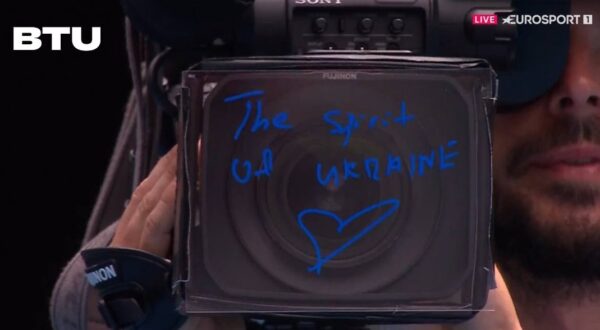 SONY
LIVE EUROSPORT 1
BTU
FUJINON
The spirit
of UKRAINE
FUJINON